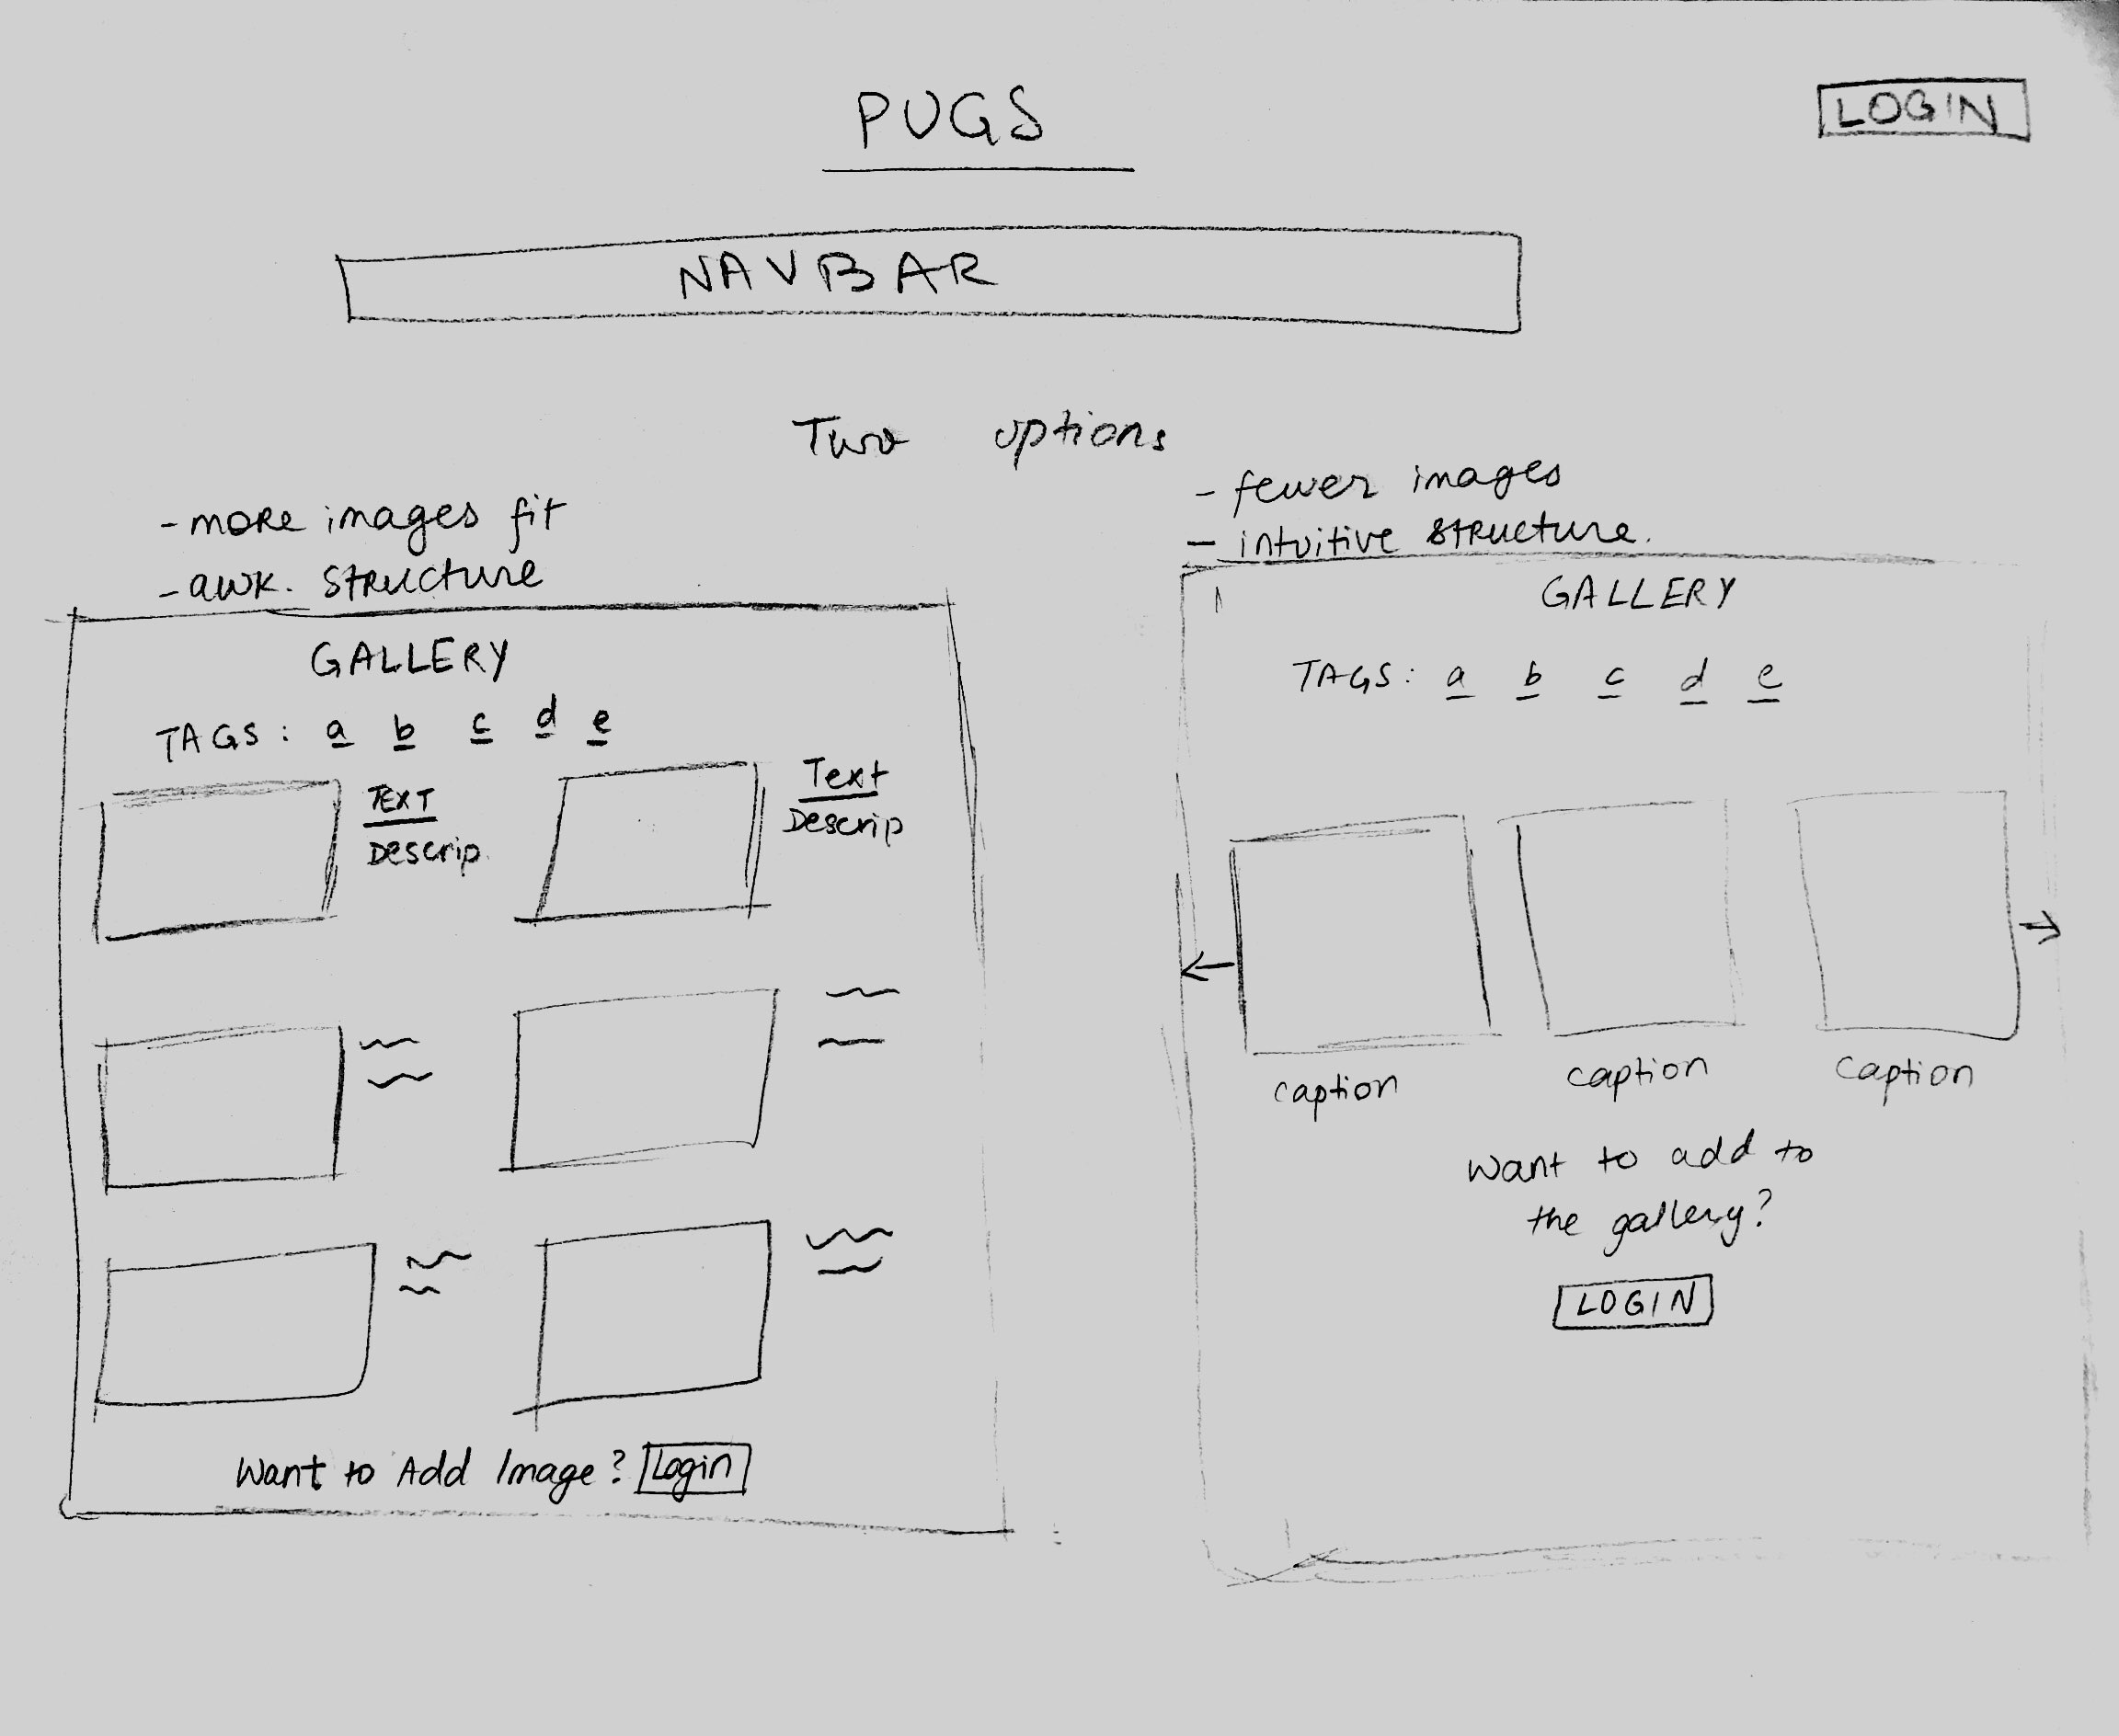 PUGS
LOGIN
NAVBAR
Two options
- more images fit
- awk. structure
GALLERY
TAGS: a b c d e
TEXT
Descrip.
Text
Descrip
Want to Add Image? Login
- fewer images
- intuitive structure.
GALLERY
TAGS: a b c d e
caption caption caption
Want to add to
the gallery?
LOGIN